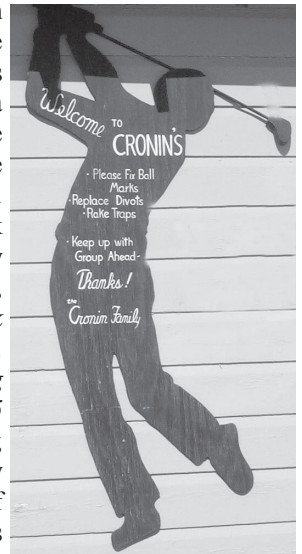 Welcome TO
CRONIN'S
· Please Fix Ball
Marks
· Replace Divots
· Rake Traps
· Keep up with
Group Ahead -
Thanks!
the
Cronin Family